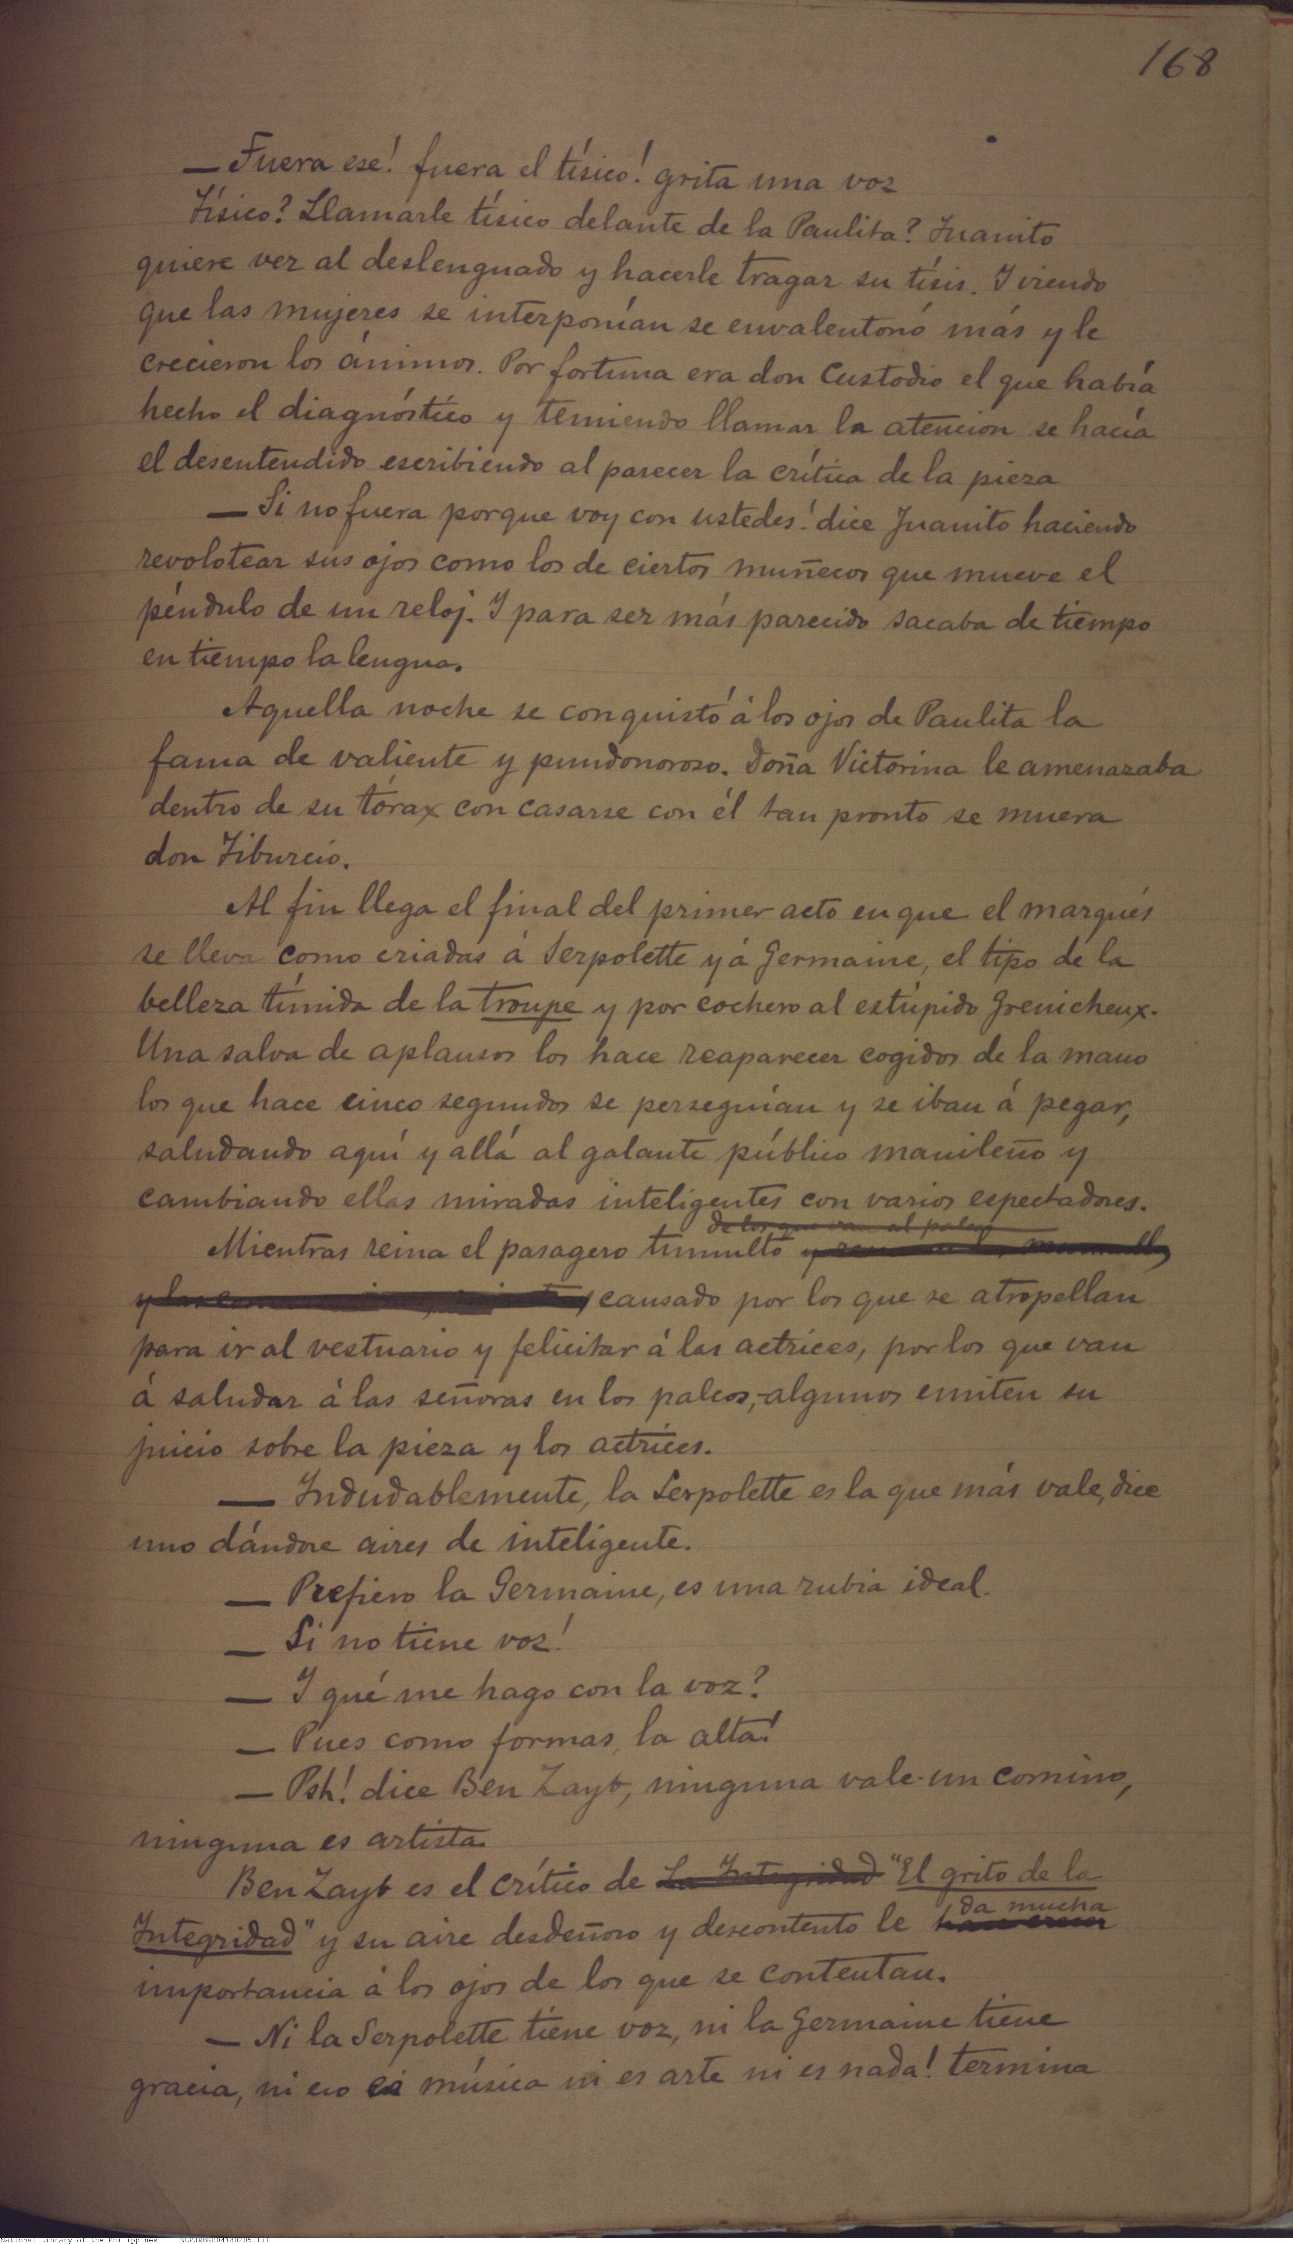 168
— Fuera ese! fuera el tísico! grita una voz
Tísico? Llamarle tísico delante de la Paulita? Juanito
quiere ver al deslenguado y hacerle tragar su tísis. I viendo
que las mujeres se interponían se envalentonó más y le
crecieron los ánimos. Por fortuna era don Custodio el que había
hecho el diagnóstico y temiendo llamar la atencion se hacía
el desentendido escribiendo al parecer la crítica de la pieza
— Si no fuera porque voy con ustedes! dice Juanito haciendo
revolotear sus ojos como los de ciertos muñecos que mueve el
péndulo de un reloj. I para ser más parecido sacaba de tiempo
en tiempo la lengua.
Aquella noche se conquistó á los ojos de Paulita la
fama de valiente y pundonoroso. Doña Victorina le amenazaba
dentro de su tórax con casarse con él tan pronto se muera
don Tiburcio.
Al fin llega el final del primer acto en que el marqués
se lleva como criadas á Serpolette y á Germaine, el tipo de la
belleza tímida de la troupe y por cochero al estúpido Grenicheux.
Una salva de aplausos los hace reaparecer cogidos de la mano
los que hace cinco segundos se perseguían y se iban á pegar,
saludando aquí y allá al galante público manileño y
cambiando ellas miradas inteligentes con varios espectadores.
de los que van al palco
Mientras reina el pasagero tumulto
causado por los que se atropellan
para ir al vestuario y felicitar á las actrices, por los que van
á saludar á las señoras en los palcos,- algunos emiten su
juicio sobre la pieza y los actrices.
— Indudablemente, la Serpolette es la que más vale, dice
uno dándose aires de inteligente.
— Prefiero la Germaine, es una rubia ideal.
— Si no tiene voz!
— I qué me hago con la voz?
— Pues como formas, la alta!
— Psh! dice Ben Zayb, ninguna vale un comino,
ninguna es artista
Ben Zayb es el crítico de La Integridad "El grito de la
da mucha
Integridad" y su aire desdeñoso y descontento le
importancia á los ojos de los que se contentan.
— Ni la Serpolette tiene voz, ni la Germaine tiene
gracia, ni eso es música ni es arte ni es nada! termina